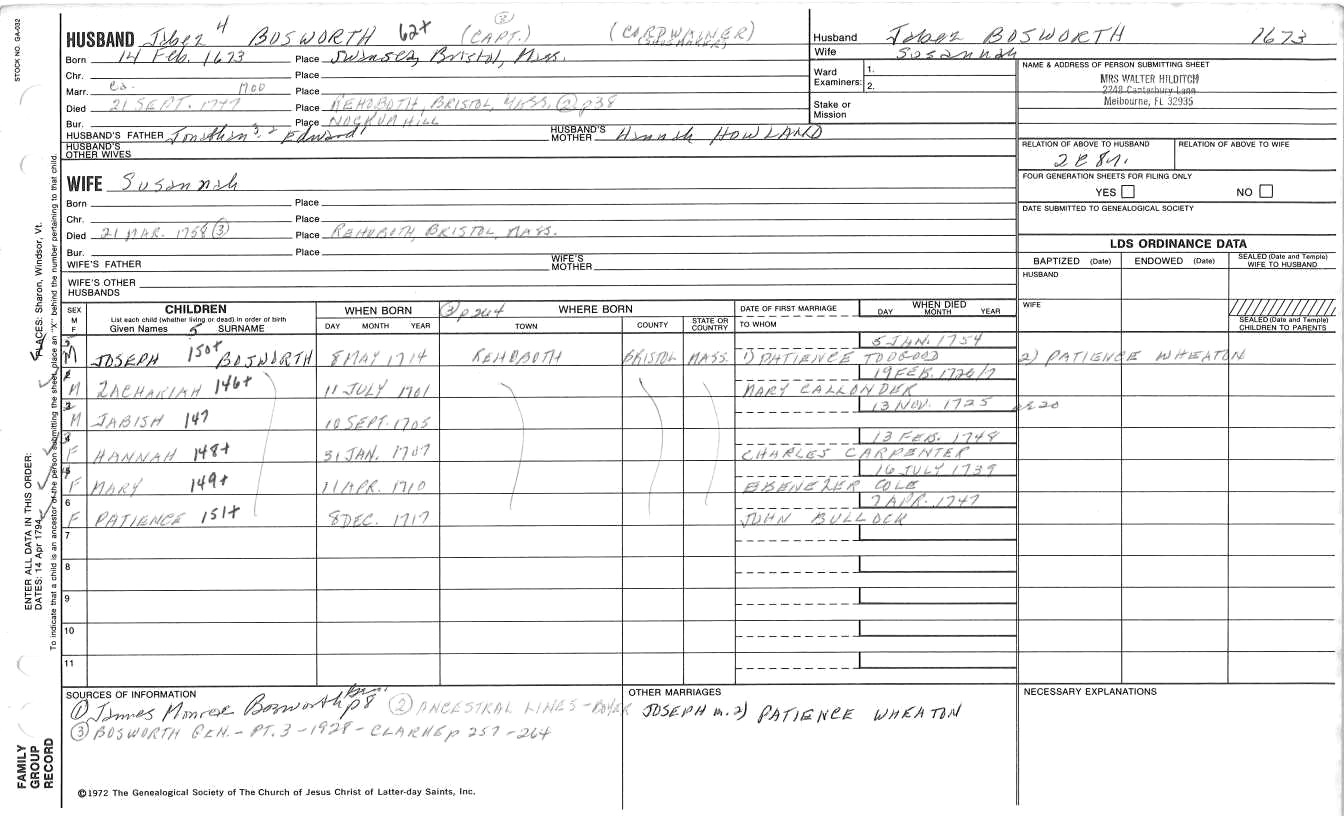 STOCK NO. GA-032
HUSBAND Jabez 4 BOSWORTH 62+ (CAPT.) (2) (CORDWAINER)
Born 14 Feb. 1673 Place Swansea, Bristol, Mass.
Chr. Place
Marr. ca. 1700 Place
Died 21 SEPT. 1747 Place REHOBOTH, BRISTOL, MASS. (2) p38
Bur. Place NOCKUM HILL
HUSBAND'S FATHER Jonathan 3, 2 Edward HUSBAND'S MOTHER Hannah HOWLAND
HUSBAND'S OTHER WIVES
WIFE Susannah
Born Place
Chr. Place
Died 21 MAR. 1758 (3) Place REHOBOTH, BRISTOL, MASS.
Bur. Place
WIFE'S FATHER WIFE'S MOTHER
WIFE'S OTHER HUSBANDS
Husband Jabez BOSWORTH 1673
Wife Susannah
Ward Examiners: 1. 2.
Stake or Mission
NAME & ADDRESS OF PERSON SUBMITTING SHEET
MRS WALTER HILDITCH
2248 Canterbury Lane
Melbourne, FL 32935
RELATION OF ABOVE TO HUSBAND RELATION OF ABOVE TO WIFE
FOUR GENERATION SHEETS FOR FILING ONLY
YES NO
DATE SUBMITTED TO GENEALOGICAL SOCIETY
LDS ORDINANCE DATA
BAPTIZED (Date) ENDOWED (Date) SEALED (Date and Temple) WIFE TO HUSBAND
HUSBAND
WIFE
SEALED (Date and Temple) CHILDREN TO PARENTS
SEX M F CHILDREN WHEN BORN (3) p 264 WHERE BORN DATE OF FIRST MARRIAGE WHEN DIED
List each child (whether living or dead) in order of birth
Given Names 5 SURNAME DAY MONTH YEAR TOWN COUNTY STATE OR COUNTRY TO WHOM DAY MONTH YEAR
5 JAN. 1754
5 M JOSEPH 150+ BOSWORTH 8 MAY 1714 REHOBOTH BRISTOL MASS. 1) PATIENCE TOOGOOD 2) PATIENCE WHEATON
19 FEB. 1726/7
1 M ZACHARIAH 146+ 11 JULY 1701 MARY CALLONDER
13 NOV. 1725
2 M JABISH 147 10 SEPT. 1705
13 FEB. 1748
3 F HANNAH 148+ 31 JAN. 1707 CHARLES CARPENTER
16 JULY 1739
4 F MARY 149+ 11 APR. 1710 EBENEZER COLE
7 APR. 1747
6 F PATIENCE 151+ 8 DEC. 1717 JOHN BULLOCK
7
8
9
10
11
SOURCES OF INFORMATION
(1) James Monroe Bosworth p8 (2) ANCESTRAL LINES - BOYER
(3) BOSWORTH GEN. - PT. 3 - 1928 - CLARKE p 257 - 264
OTHER MARRIAGES
JOSEPH m. 2) PATIENCE WHEATON
NECESSARY EXPLANATIONS
©1972 The Genealogical Society of The Church of Jesus Christ of Latter-day Saints, Inc.
ENTER ALL DATA IN THIS ORDER:
DATES: 14 Apr 1794 PLACES: Sharon, Windsor, Vt.
To indicate that a child is an ancestor of the person submitting the sheet, place an "X" behind the number pertaining to that child.
FAMILY
GROUP
RECORD